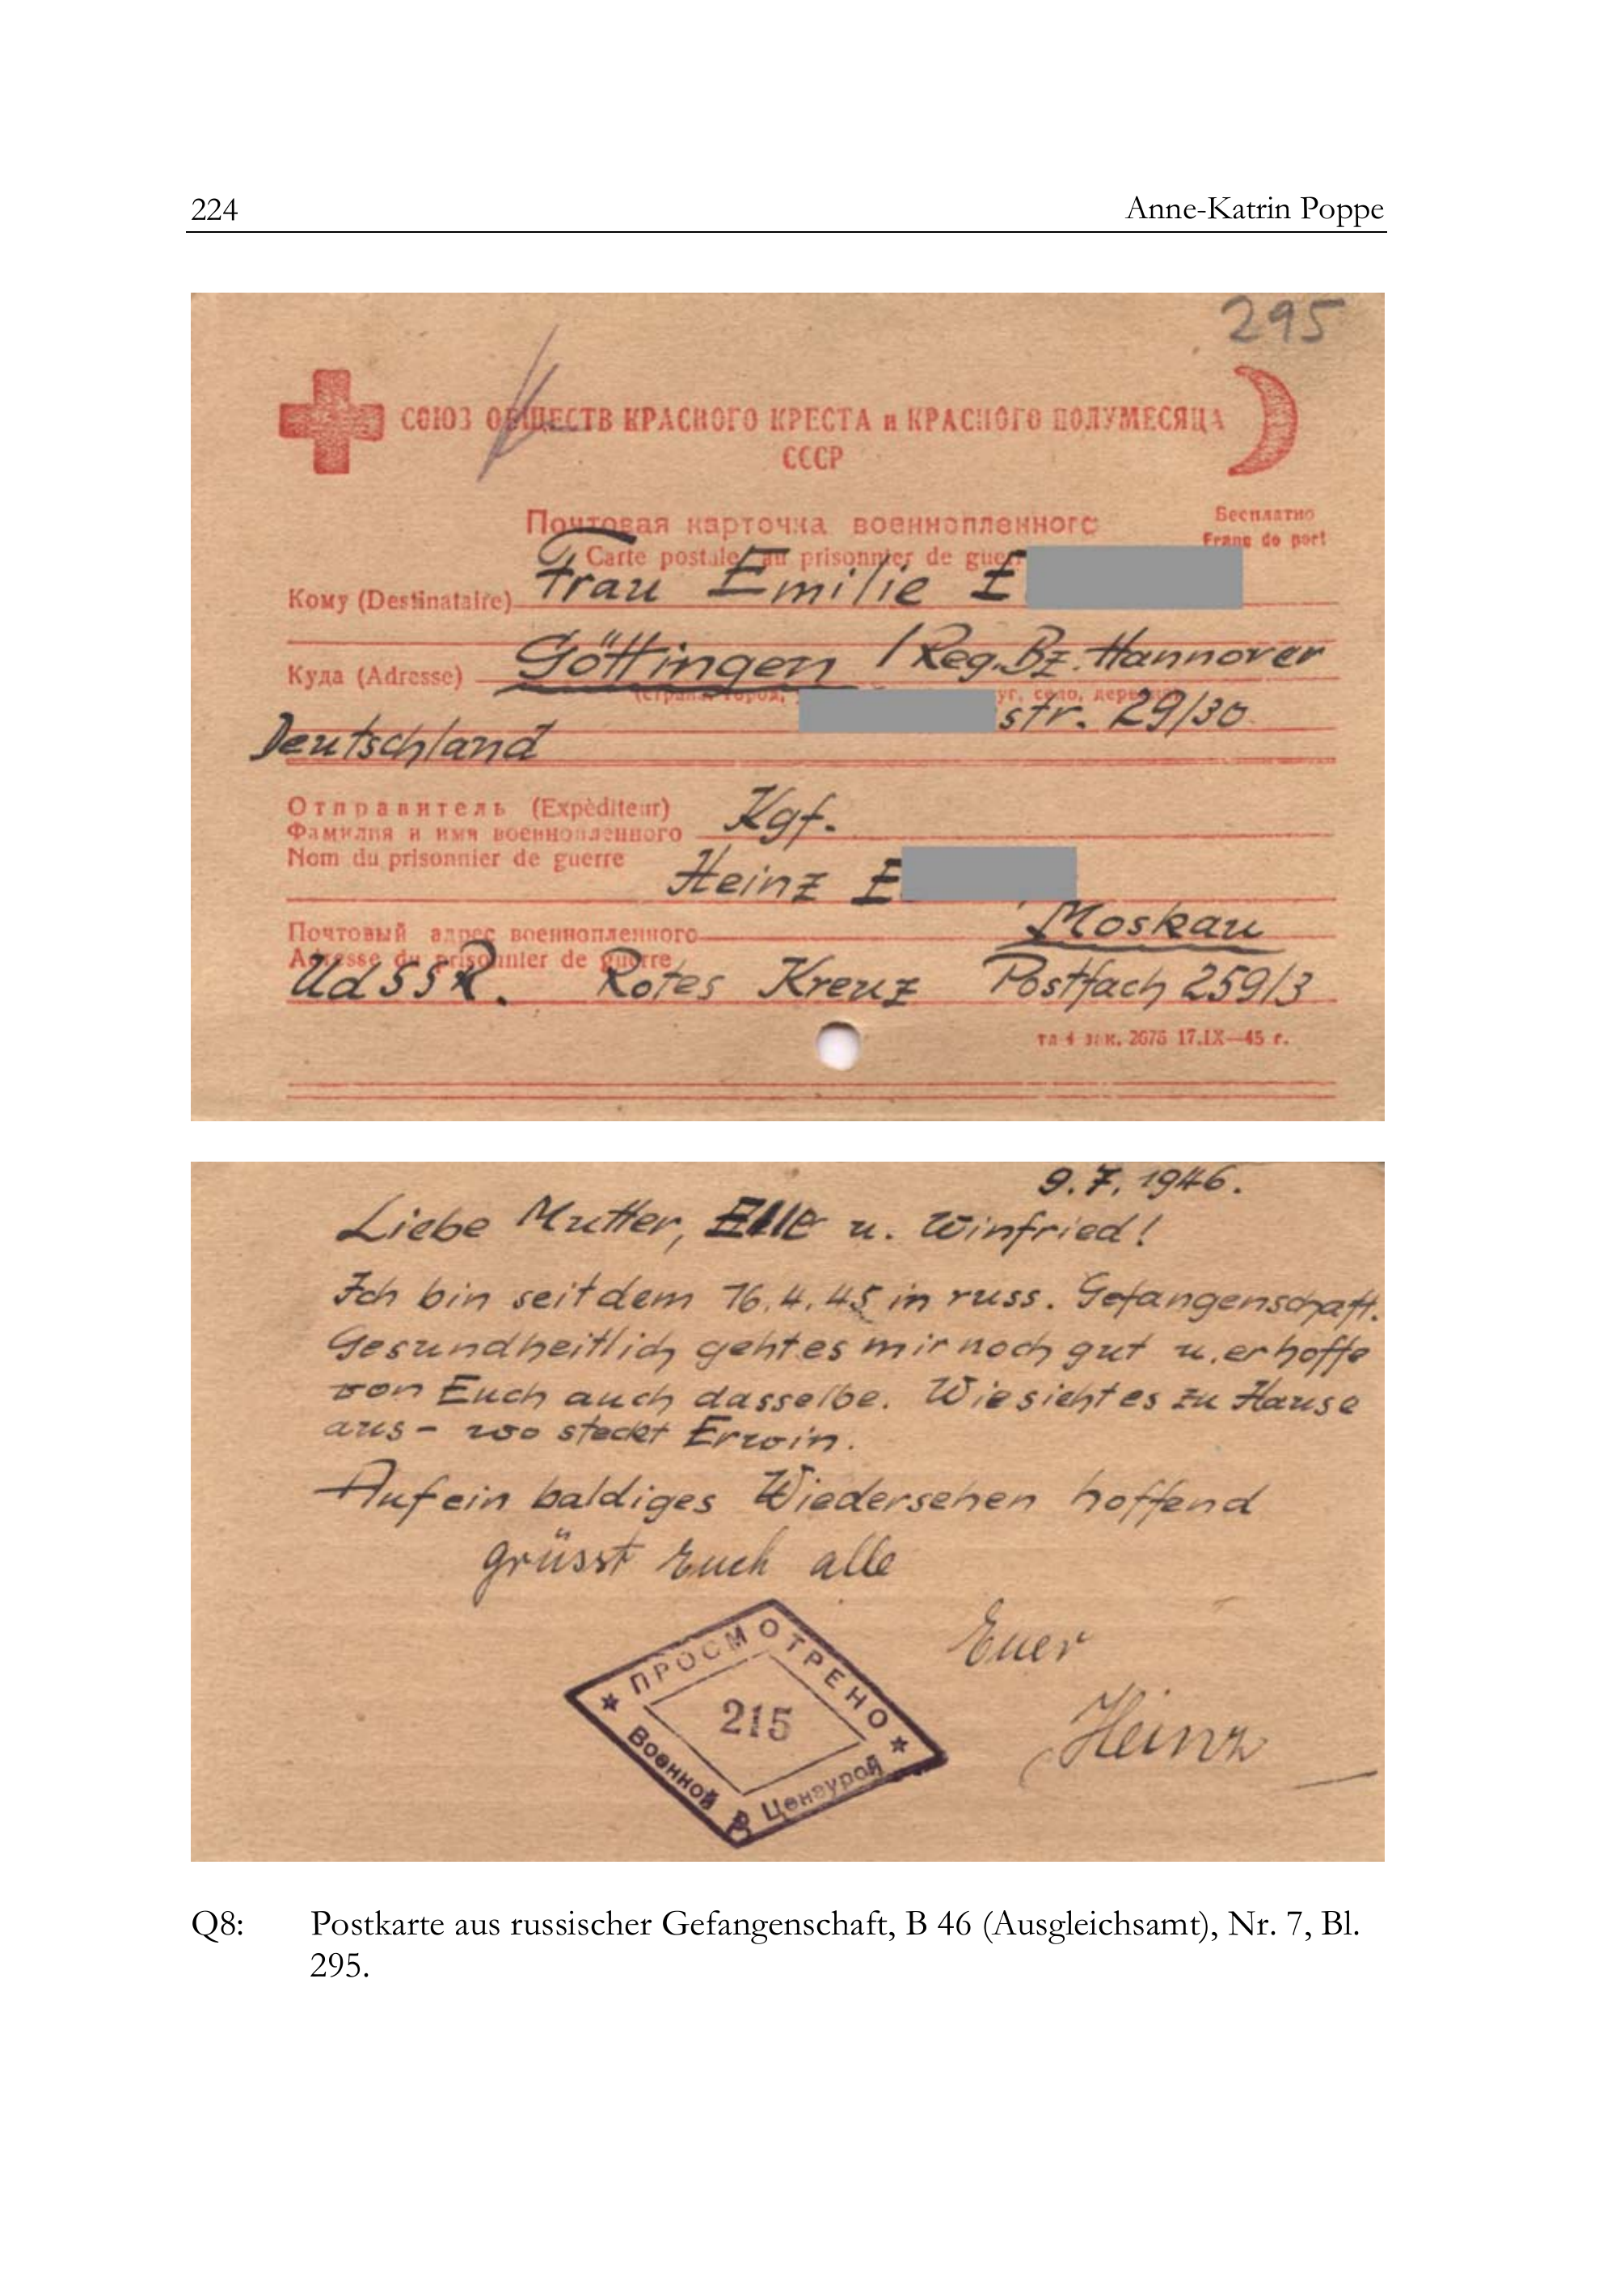 224 Anne-Katrin Poppe
295
СОЮЗ ОБЩЕСТВ КРАСНОГО КРЕСТА и КРАСНОГО ПОЛУМЕСЯЦА
СССР
Почтовая карточка военнопленного
Бесплатно
Carte postale au prisonnier de guer
Franc de port
Кому (Destinataire) Frau Emilie E
Куда (Adresse) Göttingen / Reg. Bz. Hannover
(страна, город, уг, село, деревня)
str. 29/30
Deutschland
Отправитель (Expèditeur) Kgf.
Фамилия и имя военнопленного
Nom du prisonnier de guerre
Heinz E
Почтовый адрес военнопленного Moskau
Adresse du prisonnier de guerre
UdSSR. Rotes Kreuz Postfach 259/3
зак. 2676 17.IX—45 г.
9.7.1946.
Liebe Mutter, u. Winfried!
Ich bin seit dem 16.4.45 in russ. Gefangenschaft.
Gesundheitlich geht es mir noch gut u. erhoffe
von Euch auch dasselbe. Wie sieht es zu Hause
aus - wo steckt Erwin.
Auf ein baldiges Wiedersehen hoffend
grüsst Euch alle
Euer
Heinz
ПРОСМОТРЕНО
215
Военной Цензурой
Q8: Postkarte aus russischer Gefangenschaft, B 46 (Ausgleichsamt), Nr. 7, Bl.
295.